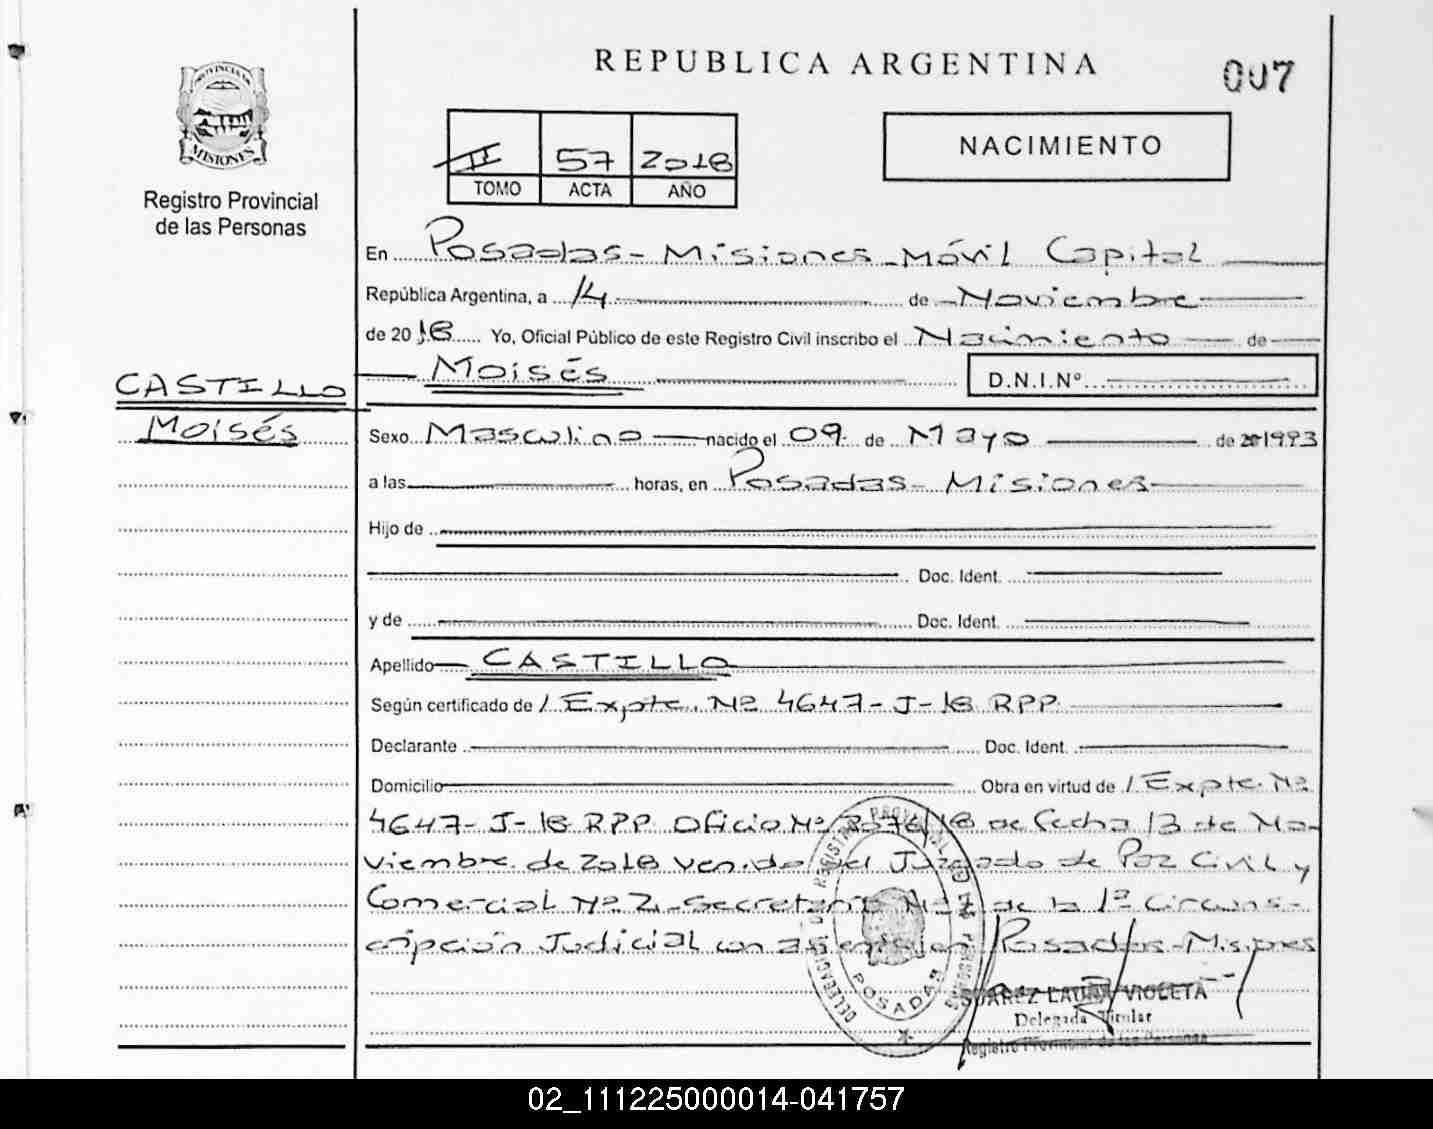 REPUBLICA ARGENTINA
007
PROVINCIA DE
MISIONES
Registro Provincial
de las Personas
II 57 2018
TOMO ACTA AÑO
NACIMIENTO
En Posadas - Misiones - Móvil Capital
República Argentina, a 14 de Noviembre
de 2018 Yo, Oficial Público de este Registro Civil inscribo el Nacimiento de
Moisés D.N.I.Nº
CASTILLO
Moisés
Sexo Masculino nacido el 09 de Mayo de 20 1993
a las horas, en Posadas - Misiones
Hijo de
Doc. Ident.
y de Doc. Ident.
Apellido CASTILLO
Según certificado de / Expte. Nº 4647 - J - 18 RPP
Declarante Doc. Ident.
Domicilio Obra en virtud de / Expte. Nº
4647 - J - 18 RPP Oficio Nº /18 de fecha 13 de No-
viembre de 2018 venido del Juzgado de Paz Civil y
Comercial Nº 2, Secretaría de la 1ª Circuns-
cripción Judicial con asiento en Posadas - Misiones
POSADAS
SUAREZ LAURA VIOLETA
Delegada Titular
Registro Provincial de las Personas
02_111225000014-041757